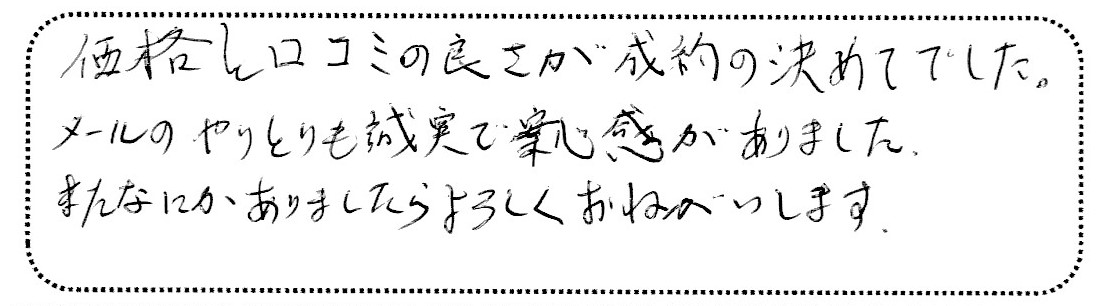 価格と口コミの良さが成約の決めてでした。
メールのやりとりも誠実で安心感がありました。
またなにかありましたらよろしくおねがいします。